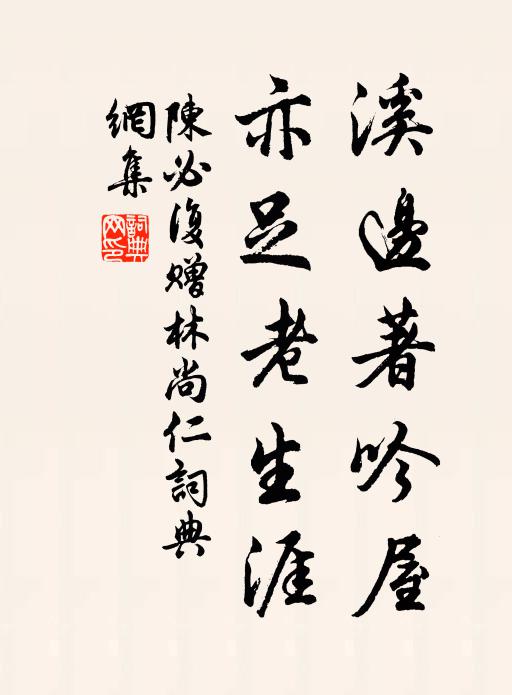 溪邊著吟屋
亦足老生涯
陳必復贈林尚仁詞典
網集
詞典
网印